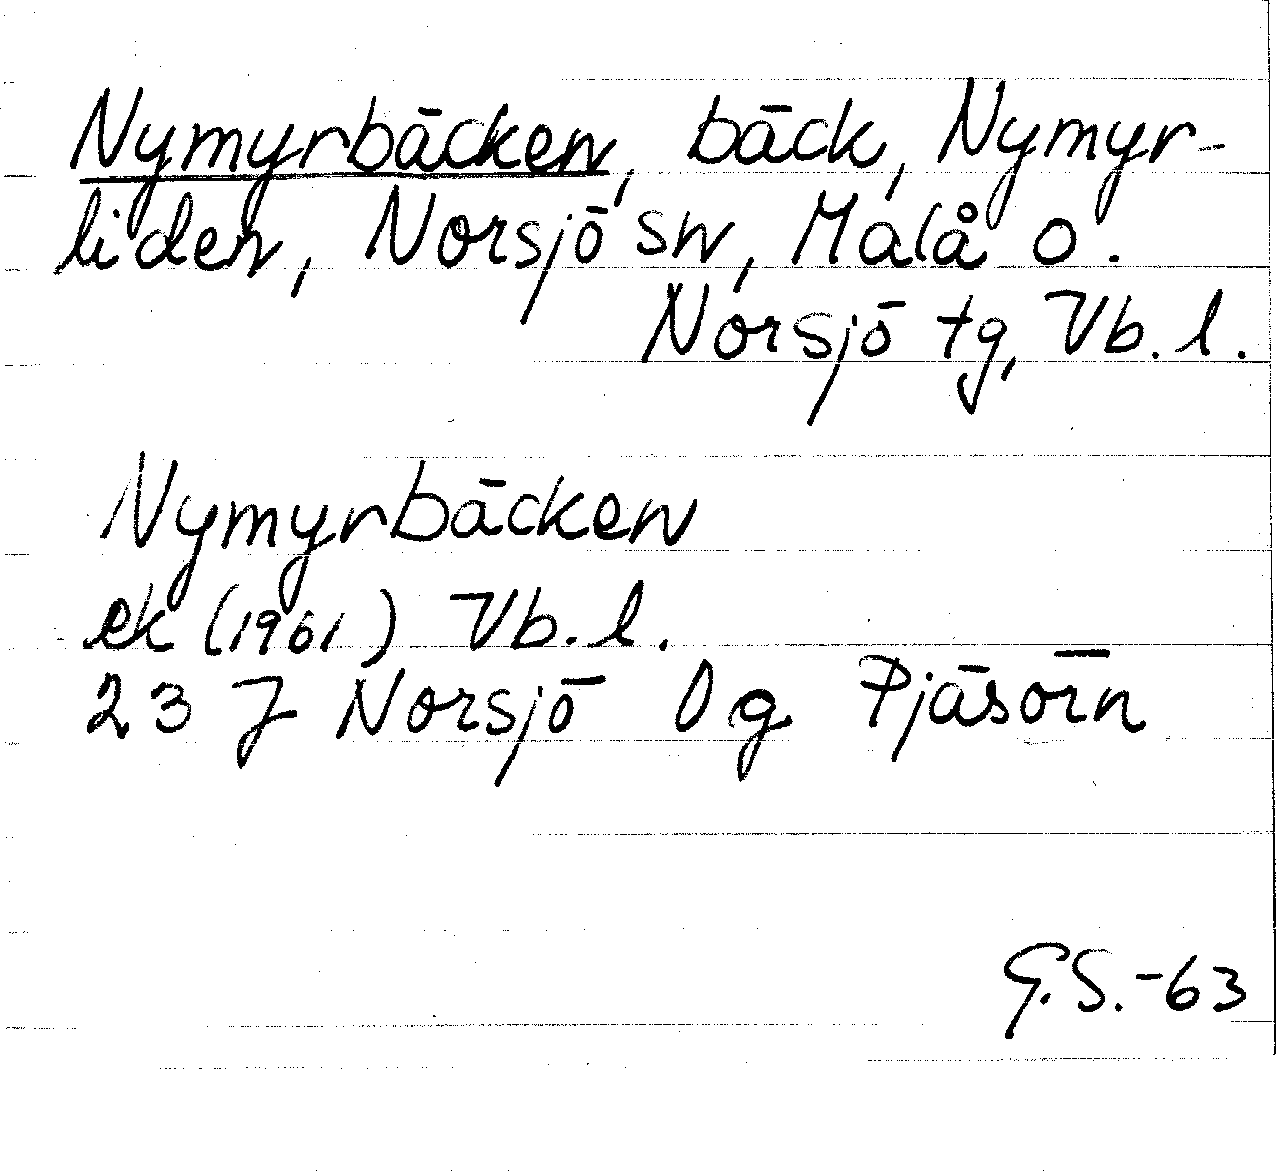 Nymyrbäcken, bäck, Nymyr-
liden, Norsjö sn, Malå o.
Norsjö tg, Vb. l.
Nymyrbäcken
ek (1961) Vb. l.
23 J Norsjö 0g Pjäsörn
G.S.-63